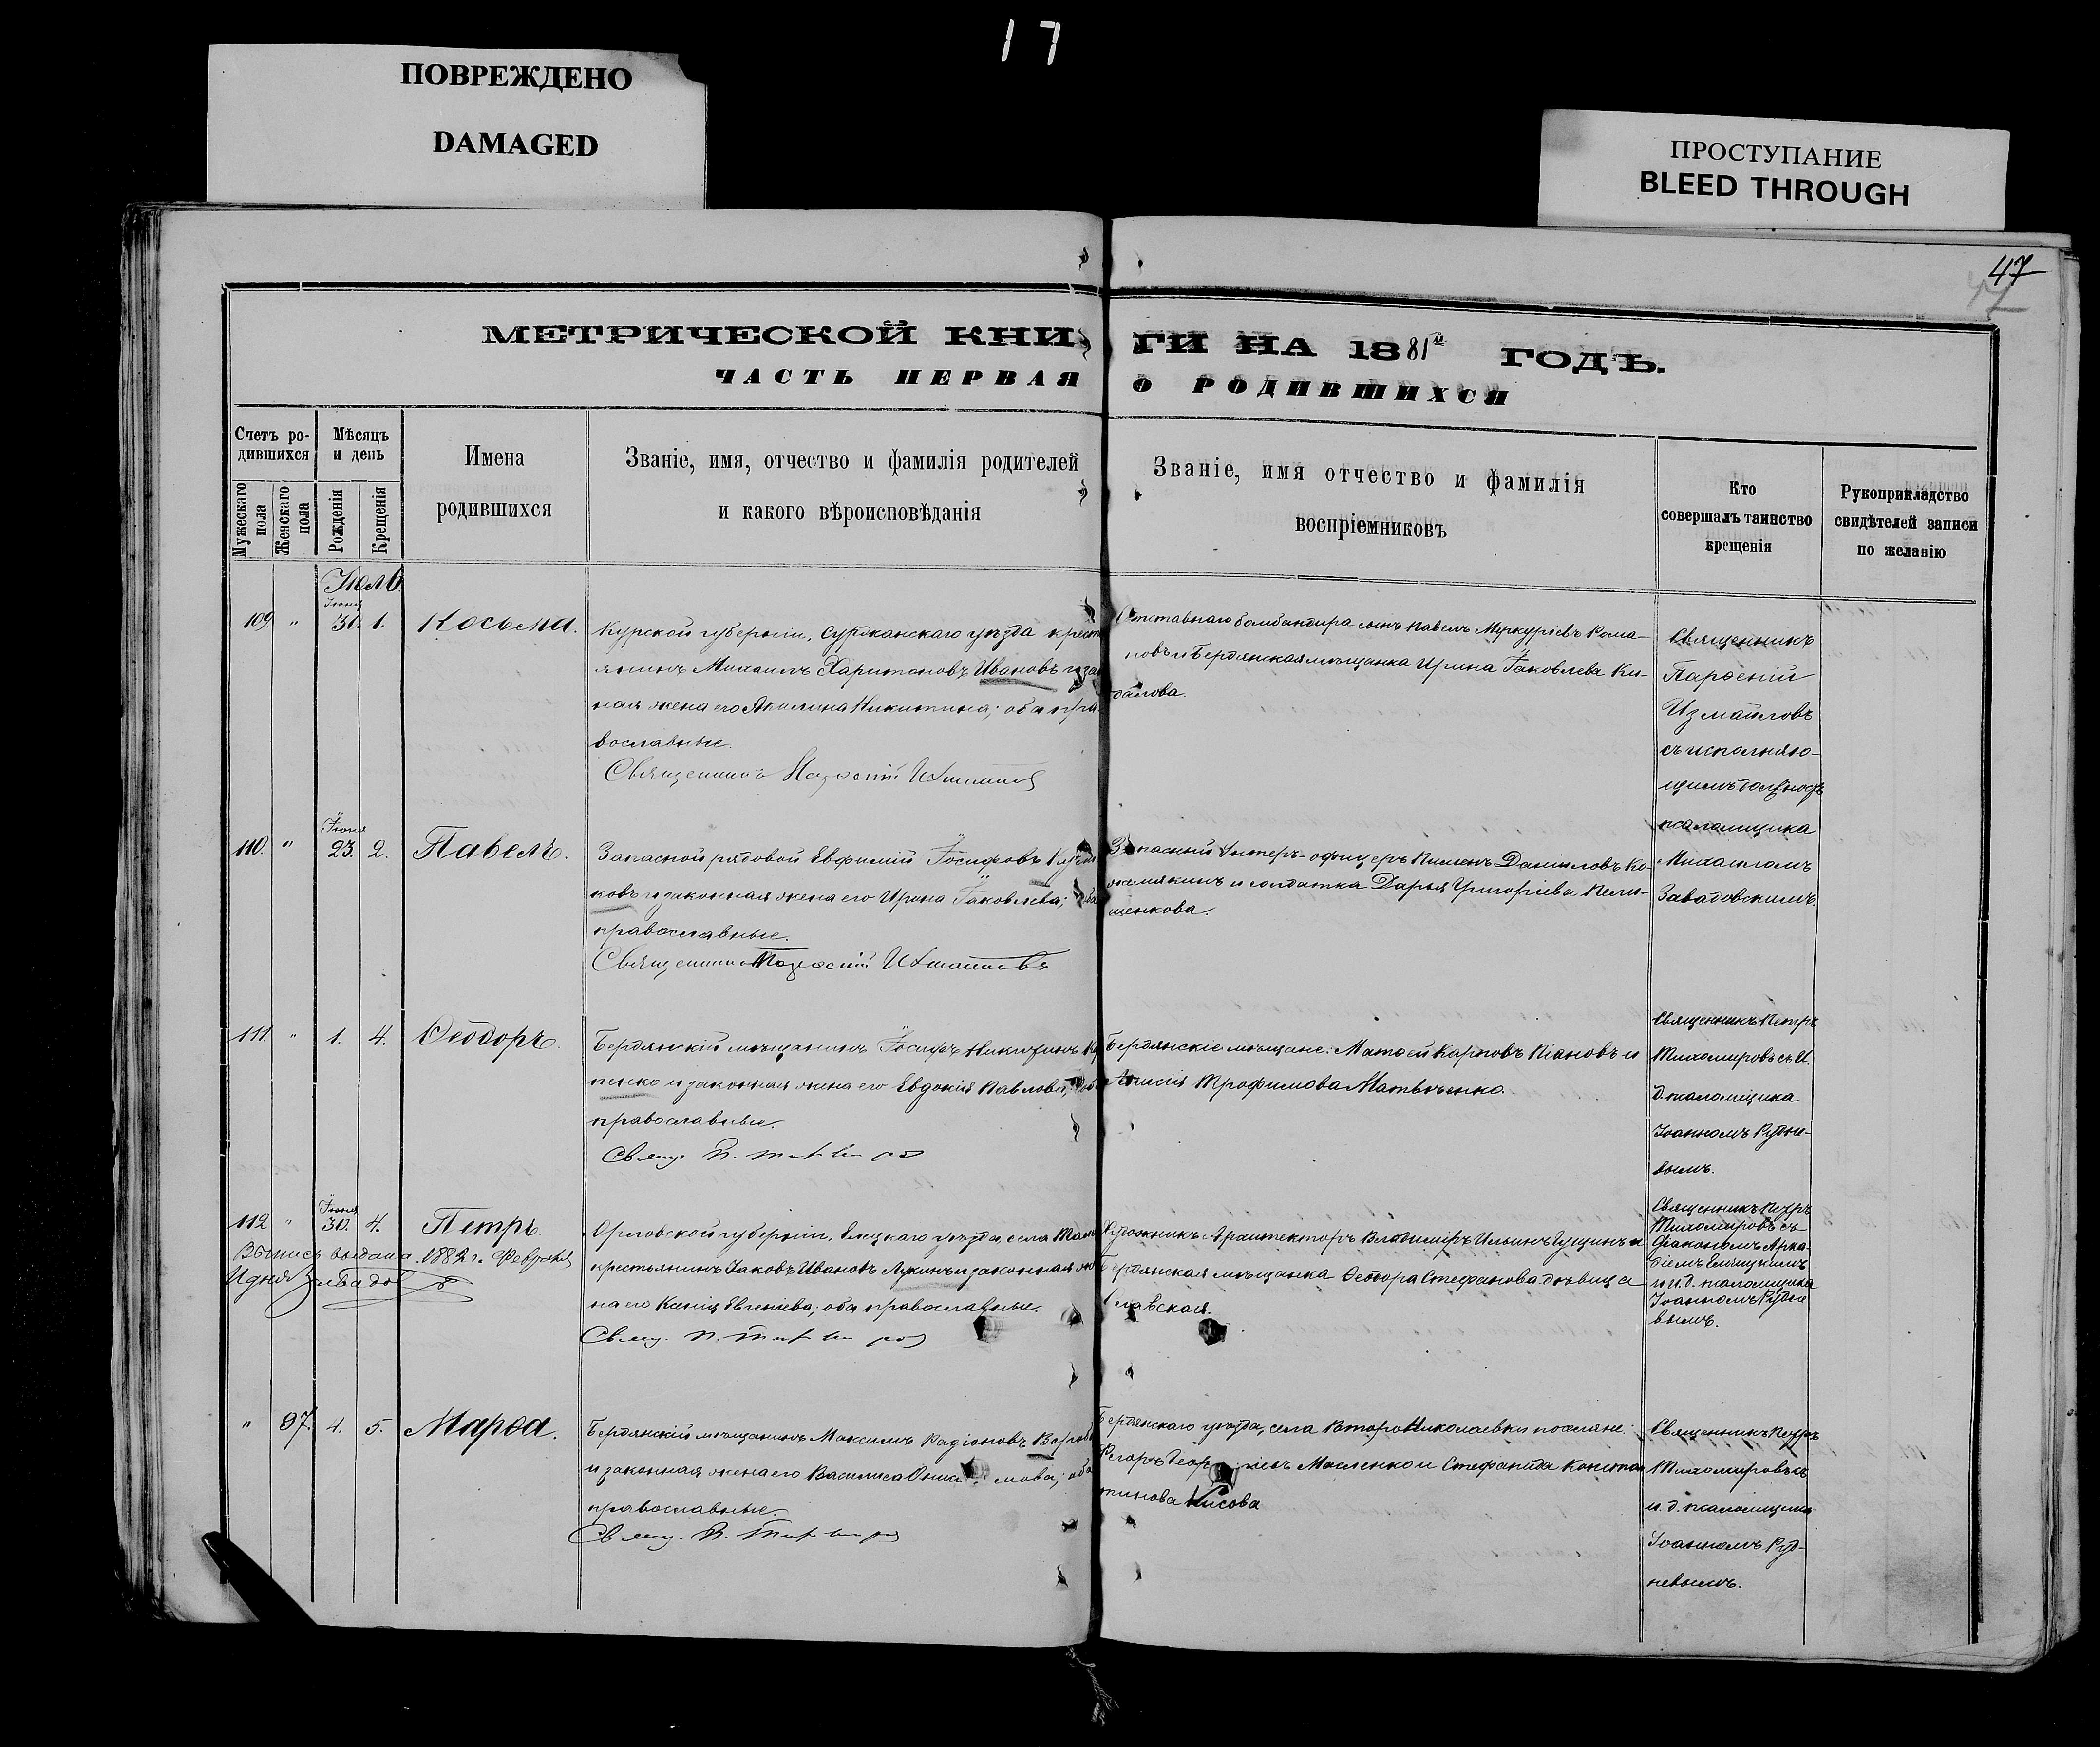 17
ПОВРЕЖДЕНО
DAMAGED
ПРОСТУПАНИЕ
BLEED THROUGH
47
МЕТРИЧЕСКОЙ КНИ ГИ НА 1881й ГОДЪ.
ЧАСТЬ ПЕРВАЯ О РОДИВШИХСЯ
Счетъ ро-
дившихся
Мужескаго пола
Женскаго пола
Мѣсяцъ
и день
Рожденія
Крещенія
Имена
родившихся
Званіе, имя, отчество и фамилія родителей
и какого вѣроисповѣданія
Званіе, имя отчество и фамилія
воспріемниковъ
Кто
совершалъ таинство
крещенія
Рукоприкладство
свидѣтелей записи
по желанію
Іюль
Іюня
109. " 30. 1. Косьма.
Курской губерніи, Суджанскаго уѣзда крест
янинъ Михаилъ Харитоновъ Ивановъ и зак
ная жена его Акилина Никитина; оба пра
вославные.
Священникъ Парѳеній Измаиловъ
Отставнаго бомбандира сынъ Павелъ Меркуріевъ Рома-
новъ и Бердянская мѣщанка Ирина Іаковлева Ки-
балова.
Священникъ
Парѳеній
Измаиловъ
съ исполняю-
щимъ должность
псаломщика
Михаиломъ
Завадовскимъ.
Іюня
110. " 23. 2. Павелъ.
Запасной рядовой Евфимій Іосифовъ
ковъ и законная жена его Ирина Іаковлева; оба
православные.
Священникъ Парѳеній Измаиловъ
Запасный Унтеръ-офицеръ Пименъ Даниловъ Ко-
жемякинъ и солдатка Дарья Григоріева Кели-
шенкова.
111. " 1. 4. Ѳеодоръ.
Бердянскій мѣщанинъ Іосифъ Никитинъ
пенко и законная жена его Евдокія Павлова; оба
православные.
Свящ. П. Тихомировъ
Бердянскіе мѣщане: Матѳей Карповъ Піановъ и
Анисія Трофимова Матвѣенко.
Священникъ Петръ
Тихомировъ съ И.
д. псаломщика
Іоанномъ Рудне-
вымъ.
Іюня
112 " 30. 4. Петръ.
Выпись выдана 1882 г. Февраля
Орловской губерніи, Елецкаго уѣзда, села
крестьянинъ Іаковъ Ивановъ Лукинъ и законная же
на его Ксенія Евгеніева; оба православные.
Свящ. П. Тихомировъ
Художникъ Архитекторъ Владиміръ Ильинъ Гущинъ и
Бердянская мѣщанка Ѳеодора Стефанова дѣвица
Славская.
Священникъ Петръ
Тихомировъ съ
Діакономъ Арка-
діемъ Елецкимъ
и и. д. псаломщика
Іоанномъ Рудне
вымъ.
" 97. 4. 5. Марѳа.
Бердянскій мѣщанинъ Максимъ Радіоновъ
и законная жена его Василиса оба
православные.
Свящ. П. Тихомировъ
Бердянскаго уѣзда, села Второ Николаевки поселяне:
Масленко и Стефанида Констан
тинова Кисова
Священникъ Петръ
Тихомировъ съ
и. д. псаломщика
Іоанномъ Руд-
невымъ.